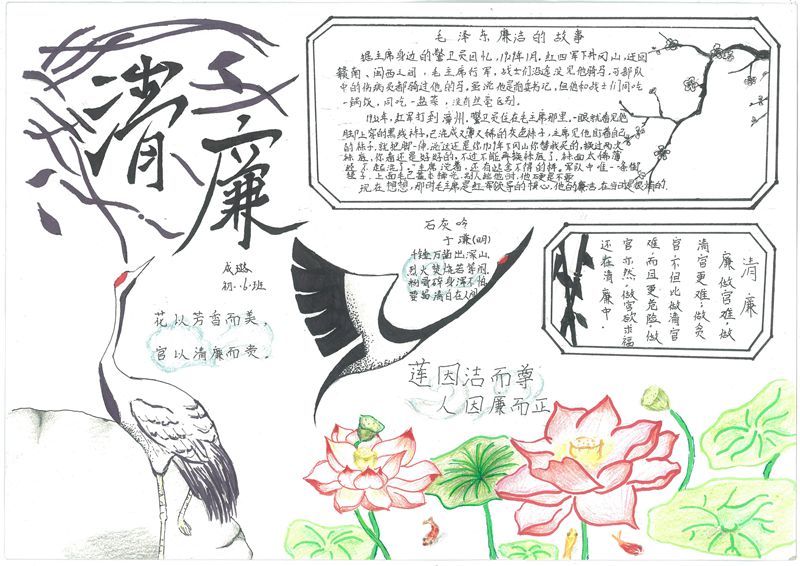 清廉
成璐
初一.6.班
花以芳香而美，
官以清廉而贵。
毛泽东廉洁的故事
据主席身边的警卫员回忆，1929年1月，红四军下井冈山，迂回
赣南、闽西之间，毛主席行军，战士们沿途没见他骑马，可部队
中的伤病员都骑过他的马。虽说他是指挥员，但他和战士们同吃
一锅饭，同吃一盘菜，没有丝毫区别。
红军打到漳州，警卫员住在毛主席那里，一眼就看见他
脚上穿的黑线袜子，已洗成又薄又稀的灰色袜子，主席见他盯着自己
的袜子，就把脚一伸，说：这还是你1929年下冈山你替我买的，换过两次
袜底，你看还是好好的，不过不能再换袜底了，袜面太稀薄
现在想想，那时毛主席是红军领导的核心，他的廉洁，在当时是很难的。
石灰吟
于谦(明)
千锤万凿出深山，
烈火焚烧若等闲，
粉骨碎身浑不怕，
要留清白在人间
清廉
廉做官难，做
清官更难；做贪
官不但比做清官
难，而且更危险，做
官亦然，做官欲求福
还在清廉中。
莲因洁而尊
人因廉而正